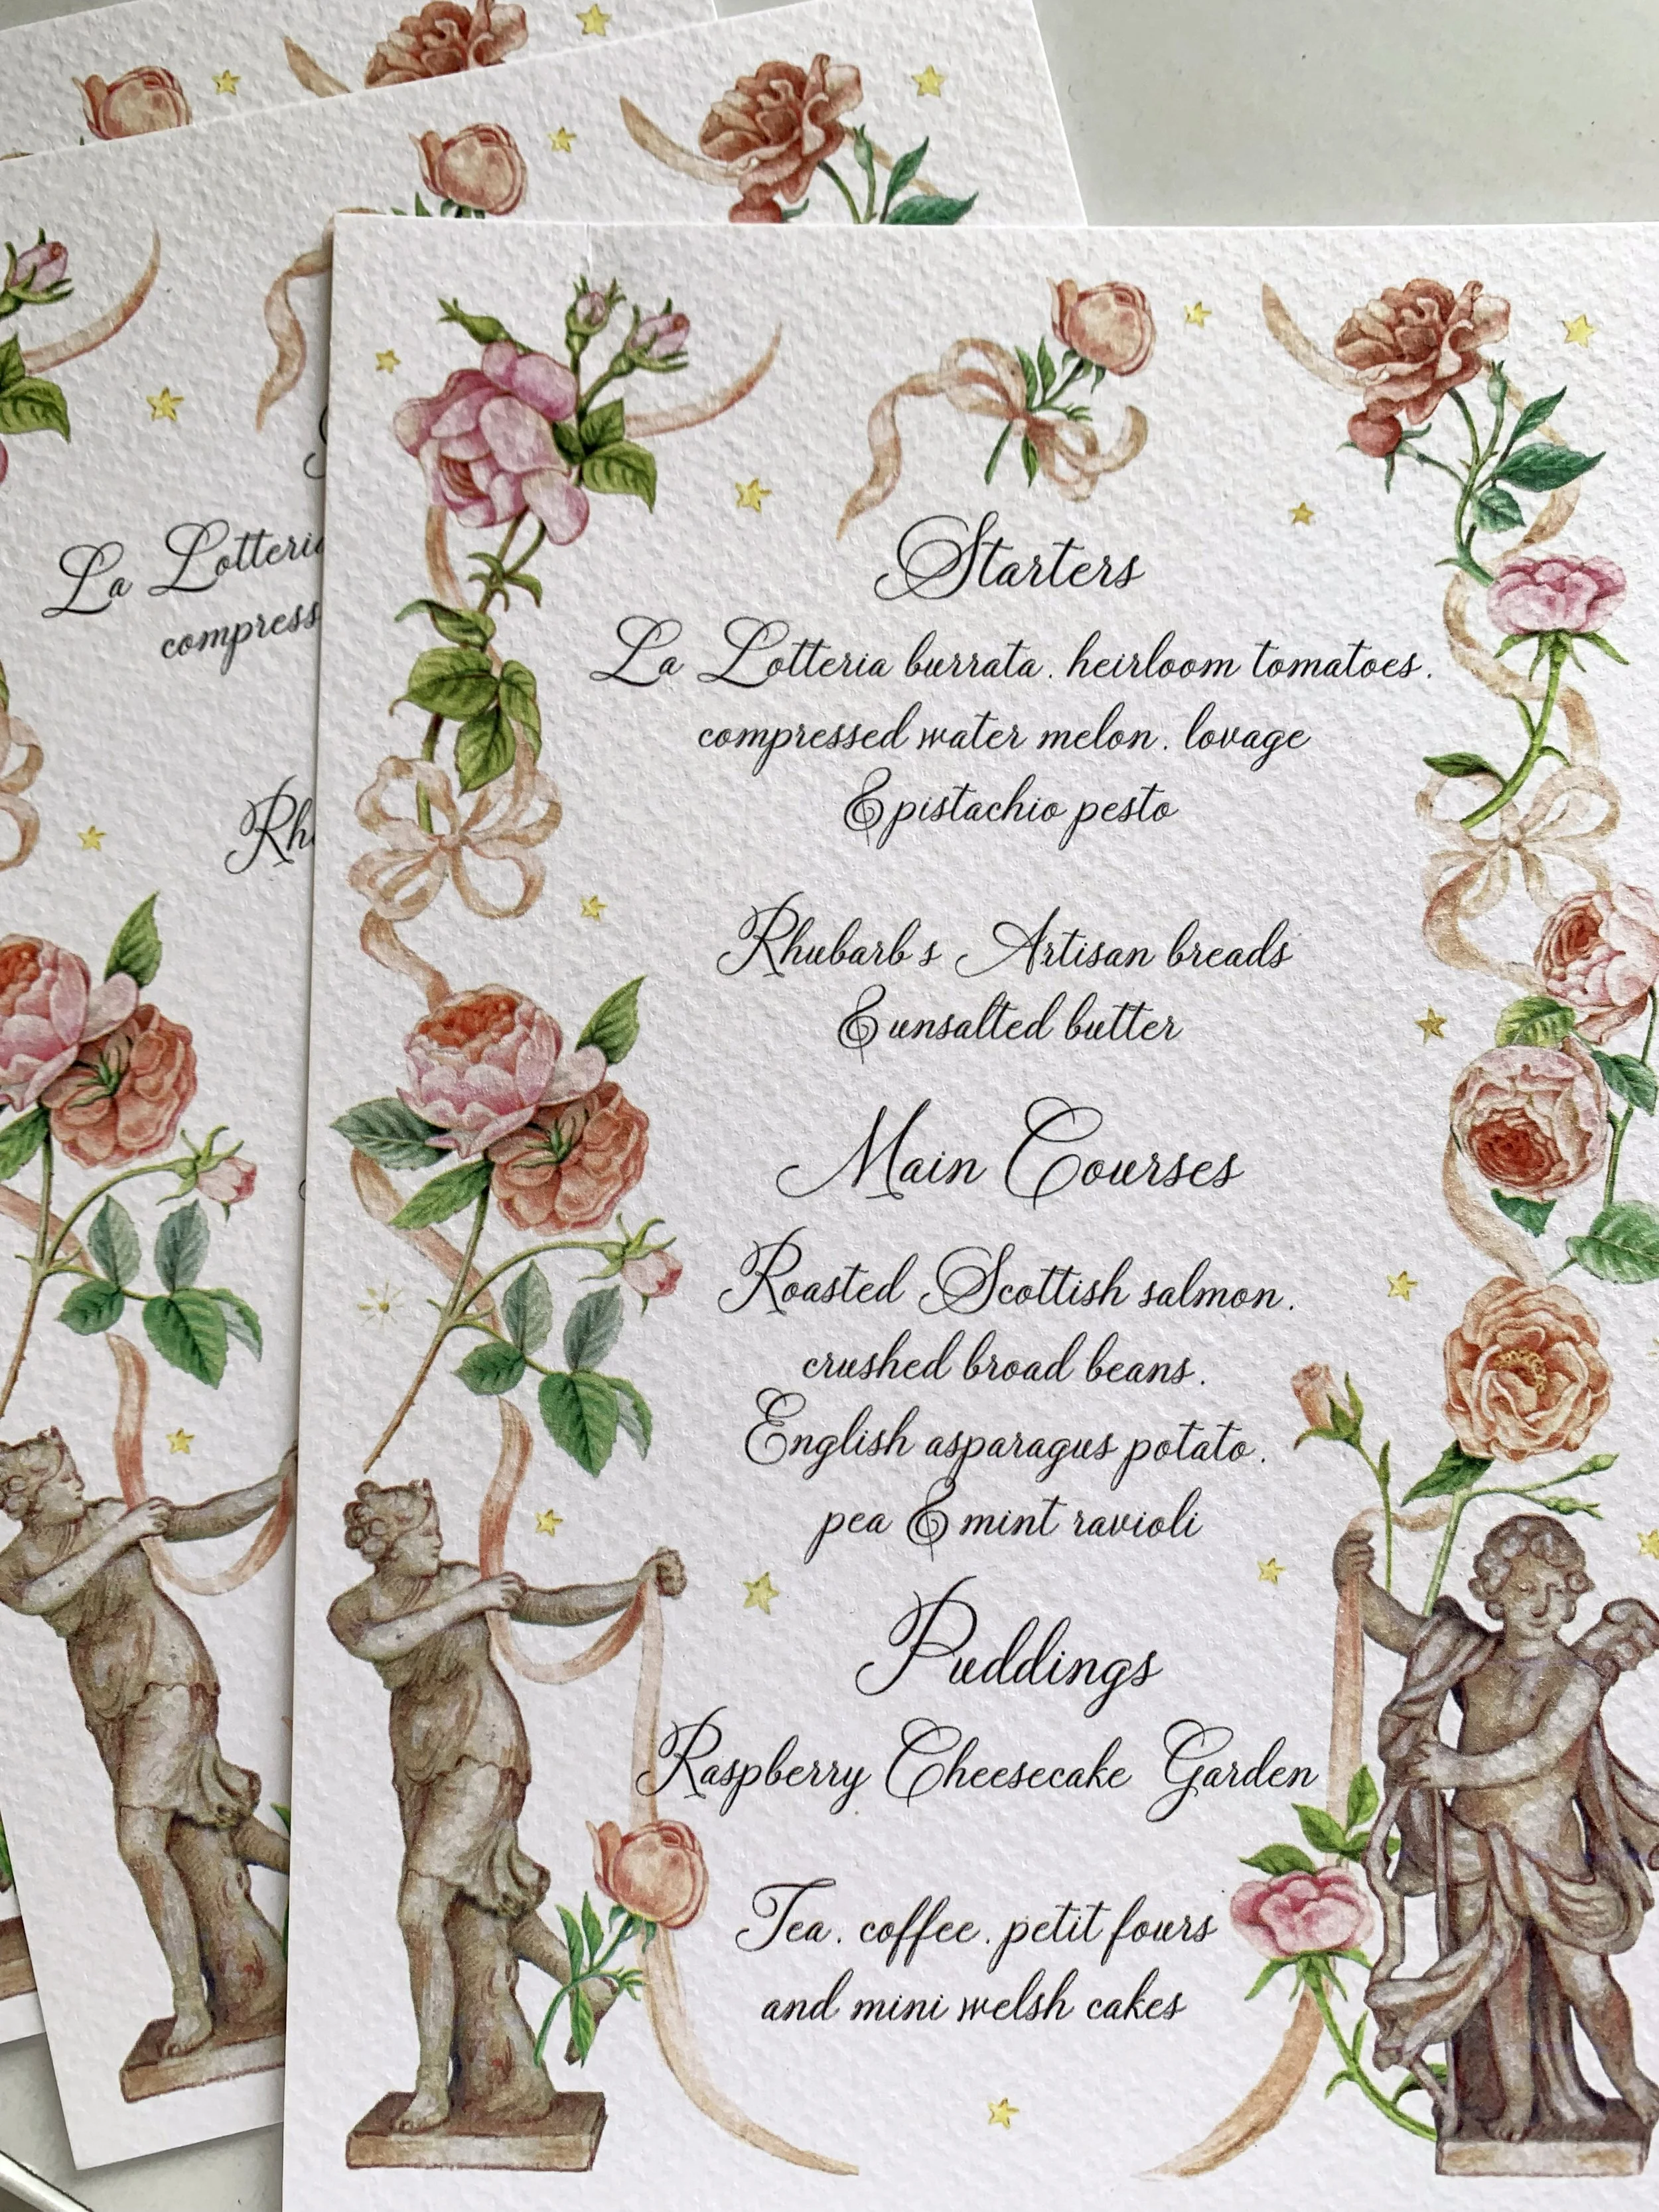 Starters
La Lotteria burrata. heirloom tomatoes.
compressed water melon. lovage
& pistachio pesto
Rhubarb s Artisan breads
& unsalted butter
Main Courses
Roasted Scottish salmon.
crushed broad beans.
English asparagus potato.
pea & mint ravioli
Puddings
Raspberry Cheesecake Garden
Tea. coffee. petit fours
and mini welsh cakes
La